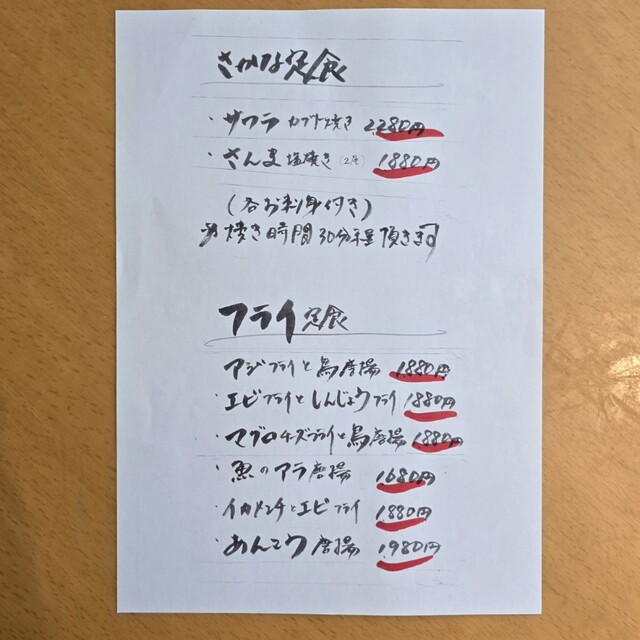 さかな定食
・サワラ カブト焼き 2280円
・さんま 塩焼き(2尾) 1880円
(各お刺身付き)
※焼き時間30分程頂きます
フライ定食
アジフライと鳥唐揚 1880円
・エビフライとしんじょうフライ 1880円
・マグロチーズフライと鳥唐揚 1880円
・魚のアラ唐揚 1680円
・イカメンチとエビフライ 1880円
・あんこう唐揚 1,980円